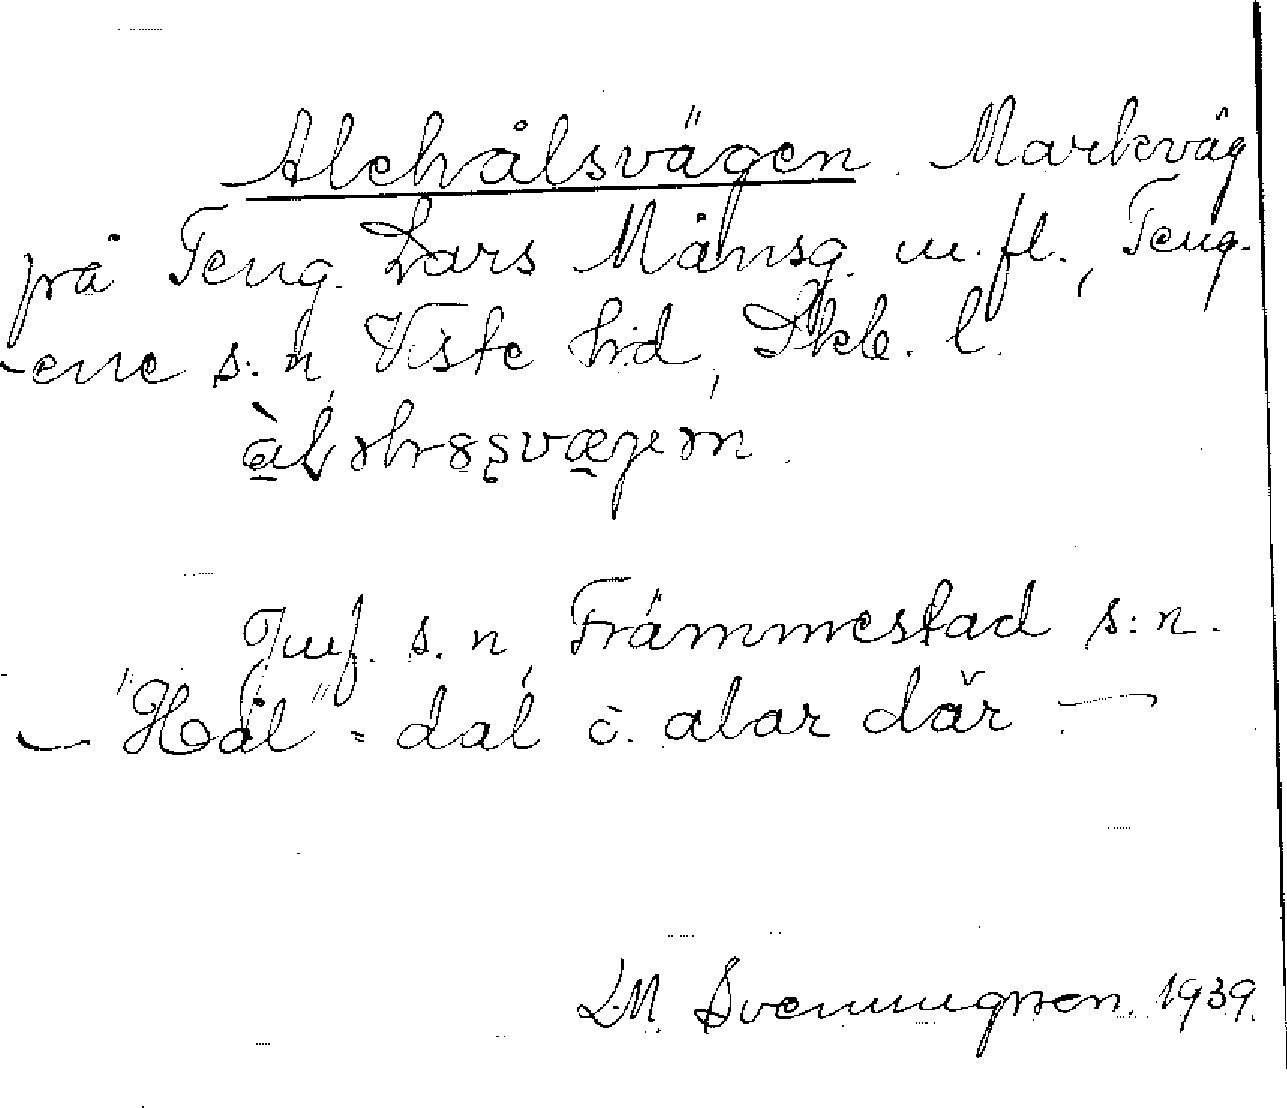 Alehålsvägen. Markväg
på Teng. Lars Månsg. m.fl., Teng-
-ene s:n, Viste hd, Skb. l.
Jmf. s.n, Främmestad s:n.
— "Hål" = dal o. alar där —
LM. Svenungsson. 1939.